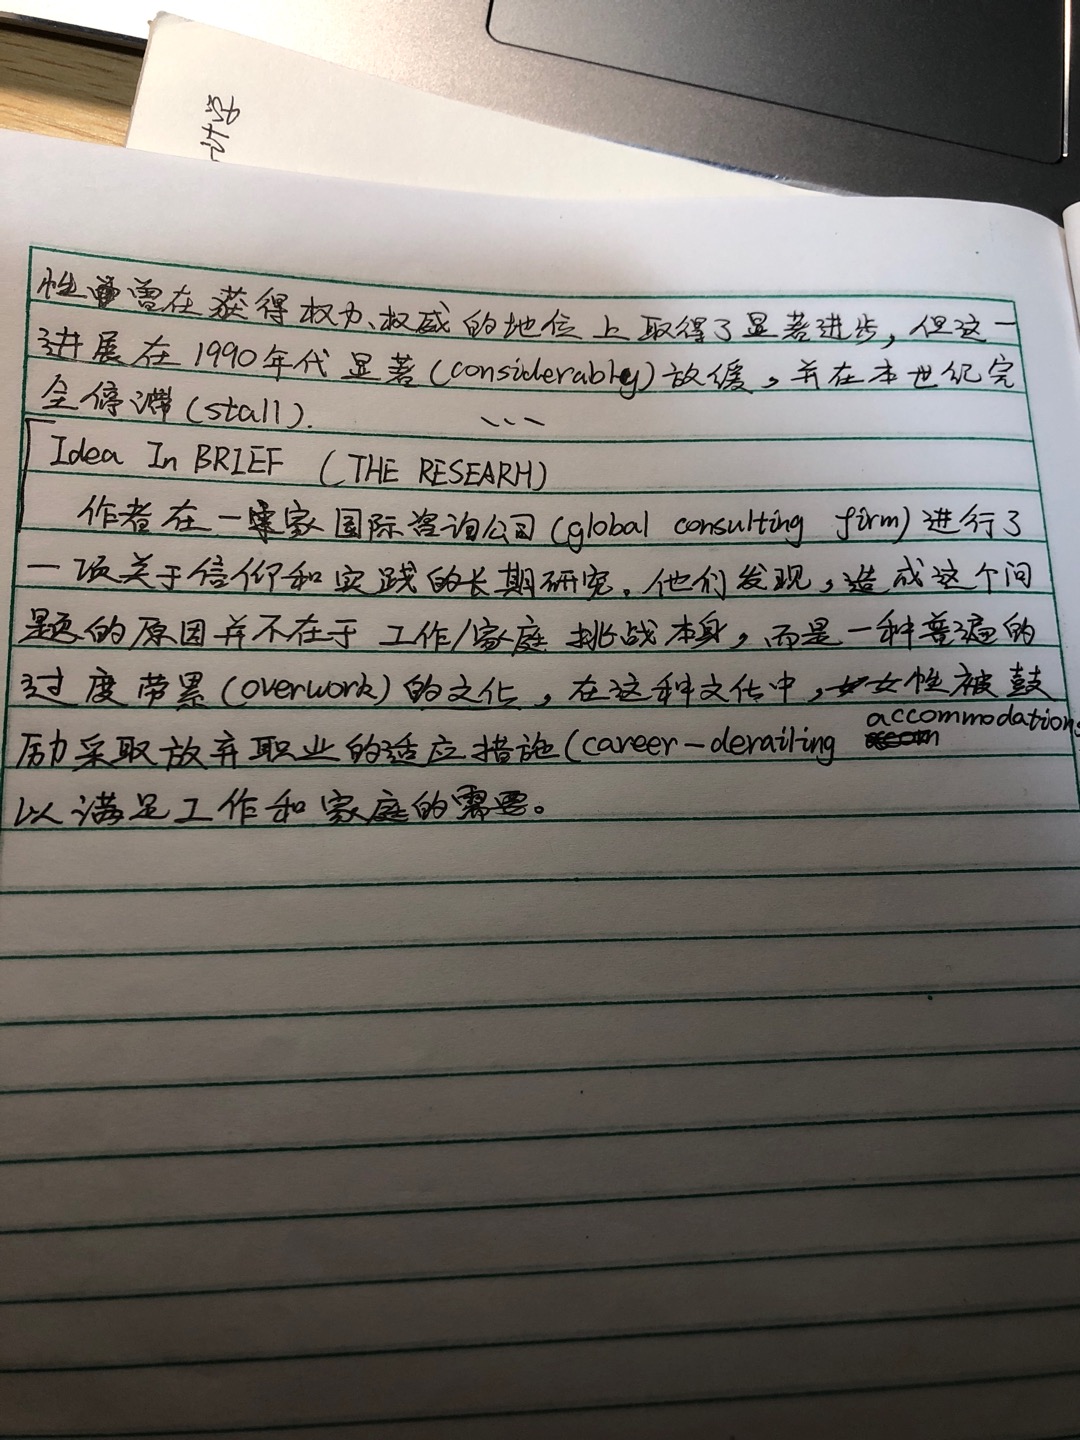 性曾在获得权力、权威的地位上取得了显著进步，但这一
进展在1990年代显著(considerably)放缓，并在本世纪完
全停滞(stall).
...
Idea In BRIEF (THE RESEARH)
作者在一家国际咨询公司(global consulting firm)进行了
一项关于信仰和实践的长期研究。他们发现，造成这个问
题的原因并不在于工作/家庭挑战本身，而是一种普遍的
过度劳累(overwork)的文化，在这种文化中，女性被鼓
励采取放弃职业的适应措施(career-derailing accommodations
以满足工作和家庭的需要。